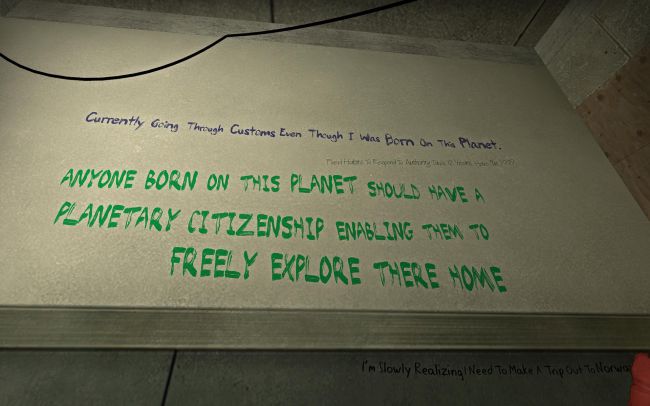 Currently Going Through Customs Even Though I Was Born On This Planet.
To Respond To Authority
ANYONE BORN ON THIS PLANET SHOULD HAVE A
PLANETARY CITIZENSHIP ENABLING THEM TO
FREELY EXPLORE THERE HOME
I'm Slowly Realizing I Need To Make A Trip Out To Norway